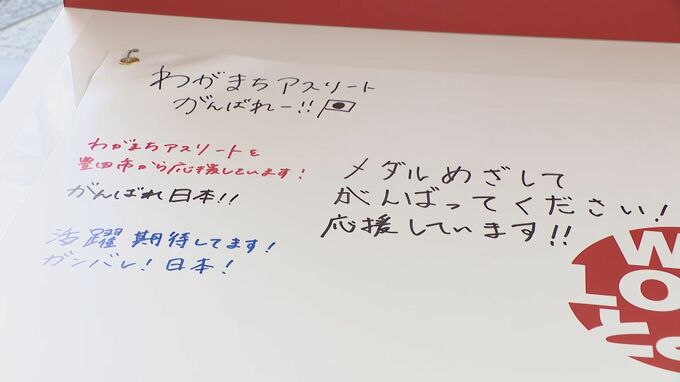 わがまちアスリート
がんばれー!!
わがまちアスリートを
豊田市から応援しています!
がんばれ日本!!
活躍期待してます!
ガンバレ!日本!
メダルめざして
がんばってください!
応援しています!!